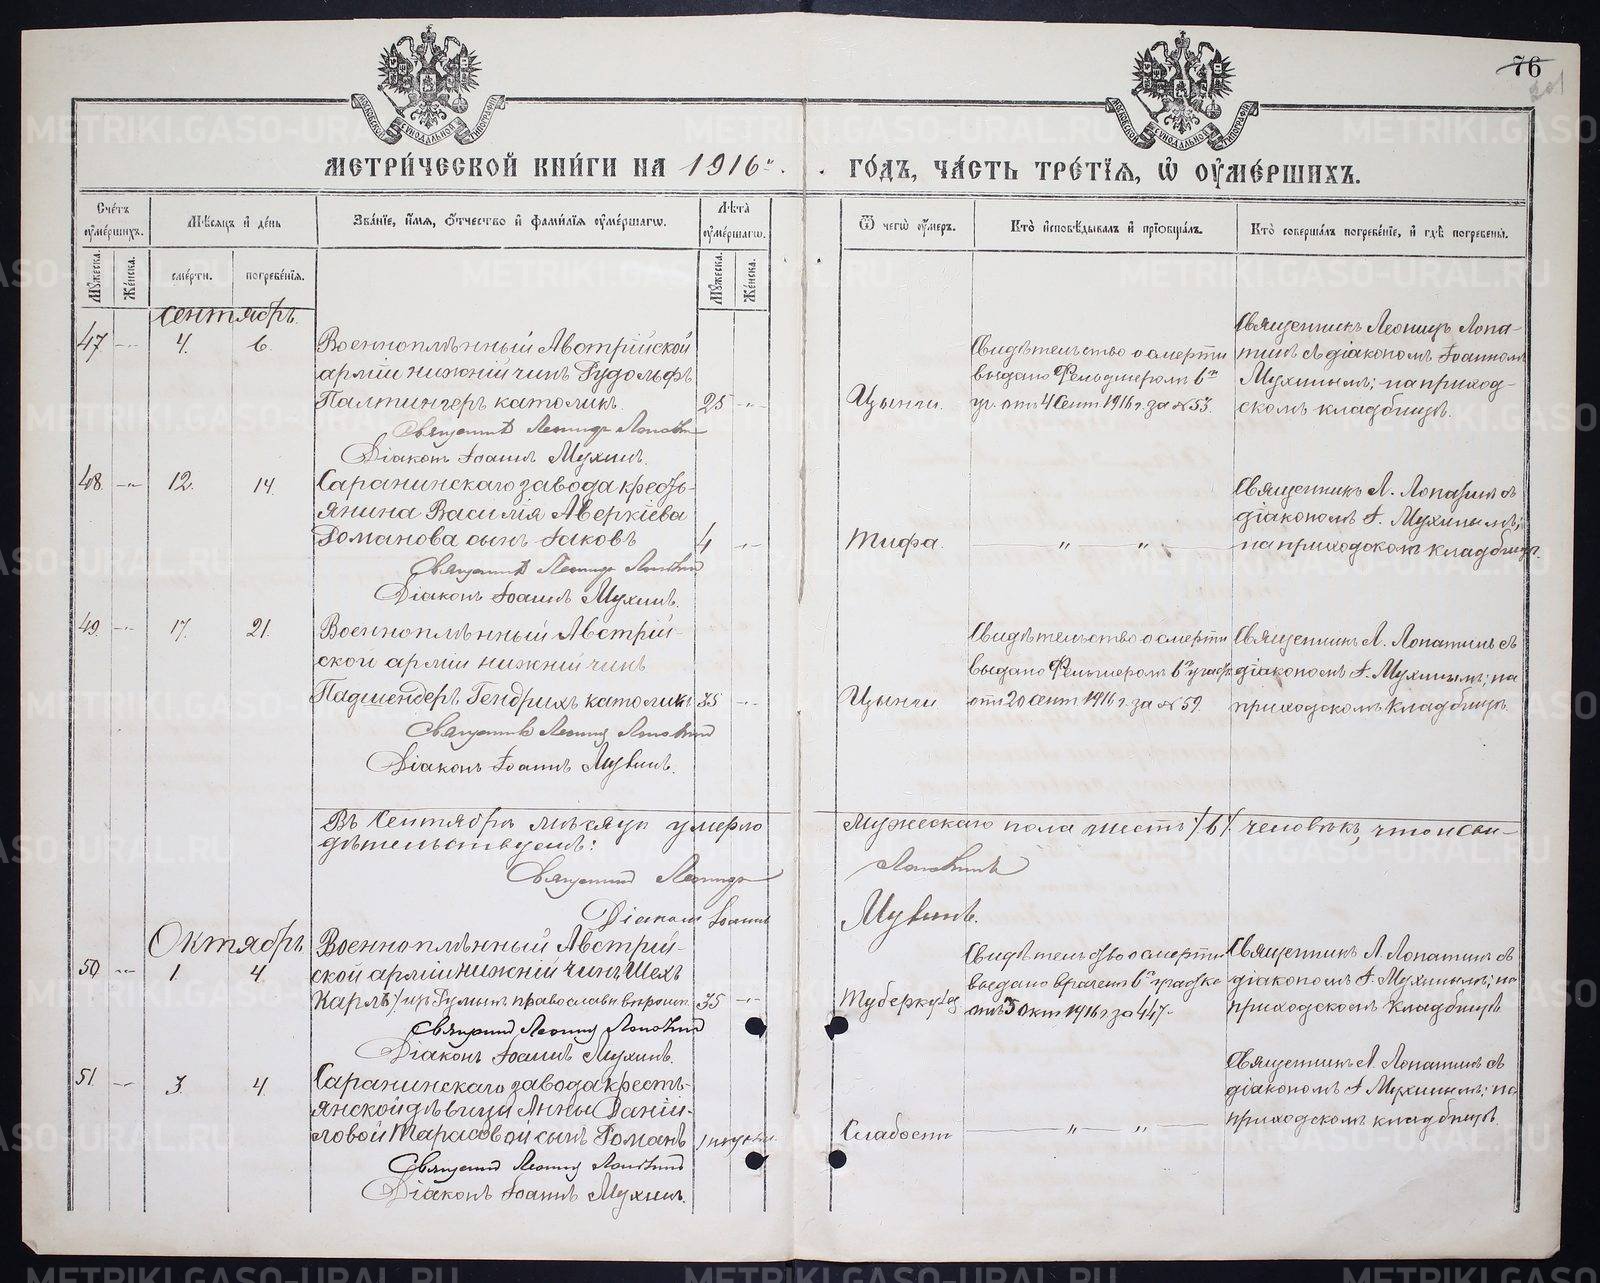 76
МЕТРИ́ЧЕСКОЙ КНИ́ГИ НА 1916й ГО́ДЪ, ЧА́СТЬ ТРЕ́ТІѦ, Ѡ ОУМЕ́РШИХЪ.
Сче́тъ оумершихъ.
Мѣсяцъ и день
Зва́ніе, и́мя, о́тчество и фами́лія оуме́ршагѡ.
Лѣта оумершагѡ.
Ѿ чегѡ оумеръ.
Кто̀ исповѣ́дывалъ и пріобща́лъ.
Кто̀ соверша́лъ погребе́ніе, и гдѣ погребены̀.
Мужеска.
Женска.
сме́рти.
погребе́нія.
Мужеска.
Женска.
Сентябрь
47 4. 6.
Военноплѣнный Австрійской
арміи нижній чинъ Рудольфъ
Палтингеръ католикъ. 25
Священникъ Леонидъ Лопатинъ
Діаконъ Іоаннъ Мухинъ.
Цынги.
Свидѣтельство о смерти
выдано Фельдшеромъ 6го
гр. отъ 4 Сент 1916 г. за № 53.
Священникъ Леонидъ Лопа-
тинъ съ діакономъ Іоанномъ
Мухинымъ; на приход-
скомъ кладбищѣ.
48. 12. 14.
Саранинскаго завода кресть-
янина Василія Аверкіева
Романова сынъ Іаковъ 4
Священникъ Леонидъ Лопатинъ
Діаконъ Іоаннъ Мухинъ.
Тифа.
Священникъ Л. Лопатинъ съ
діакономъ І. Мухинымъ;
на приходскомъ кладбищѣ.
49. 17. 21.
Военноплѣнный Австрій-
ской арміи нижній чинъ
Падшендеръ Гендрихъ католикъ 35
Священникъ Леонидъ Лопатинъ
Діаконъ Іоаннъ Мухинъ.
Цынги
Свидѣтельство о смерти
выдано Фельшеромъ 6го
отъ 20 Сент 1916 г. за № 59.
Священникъ Л. Лопатинъ съ
діакономъ І. Мухинымъ; на
приходскомъ кладбищѣ.
Въ Сентябрѣ мѣсяцѣ умерло мужескаго пола шесть /6/ человѣкъ, что и сви-
дѣтельствуемъ:
Священникъ Леонидъ Лопатинъ
Діаконъ Іоаннъ Мухинъ.
Октябрь
50 1 4
Военноплѣнный Австрій-
ской арміи нижній чинъ Шехъ
Карлъ /из Румын православн вѣроисп. 35
Священникъ Леонидъ Лопатинъ
Діаконъ Іоаннъ Мухинъ.
Туберкулез
Свидѣтельство о смерти
выдано врачемъ 6го
отъ 3 Окт 1916 г за 447.
Священникъ Л. Лопатинъ съ
діакономъ І. Мухинымъ; на
приходскомъ кладбищѣ
51. 3. 4.
Саранинскаго завода кресть-
янской дѣвицы Анны Даніи-
ловой Тарасовой сынъ Романъ
Священникъ Леонидъ Лопатинъ
Діаконъ Іоаннъ Мухинъ.
Слабости
Священникъ Л. Лопатинъ съ
діакономъ І. Мухинымъ; на
приходскомъ кладбищѣ.
METRIKI.GASO-URAL.RU